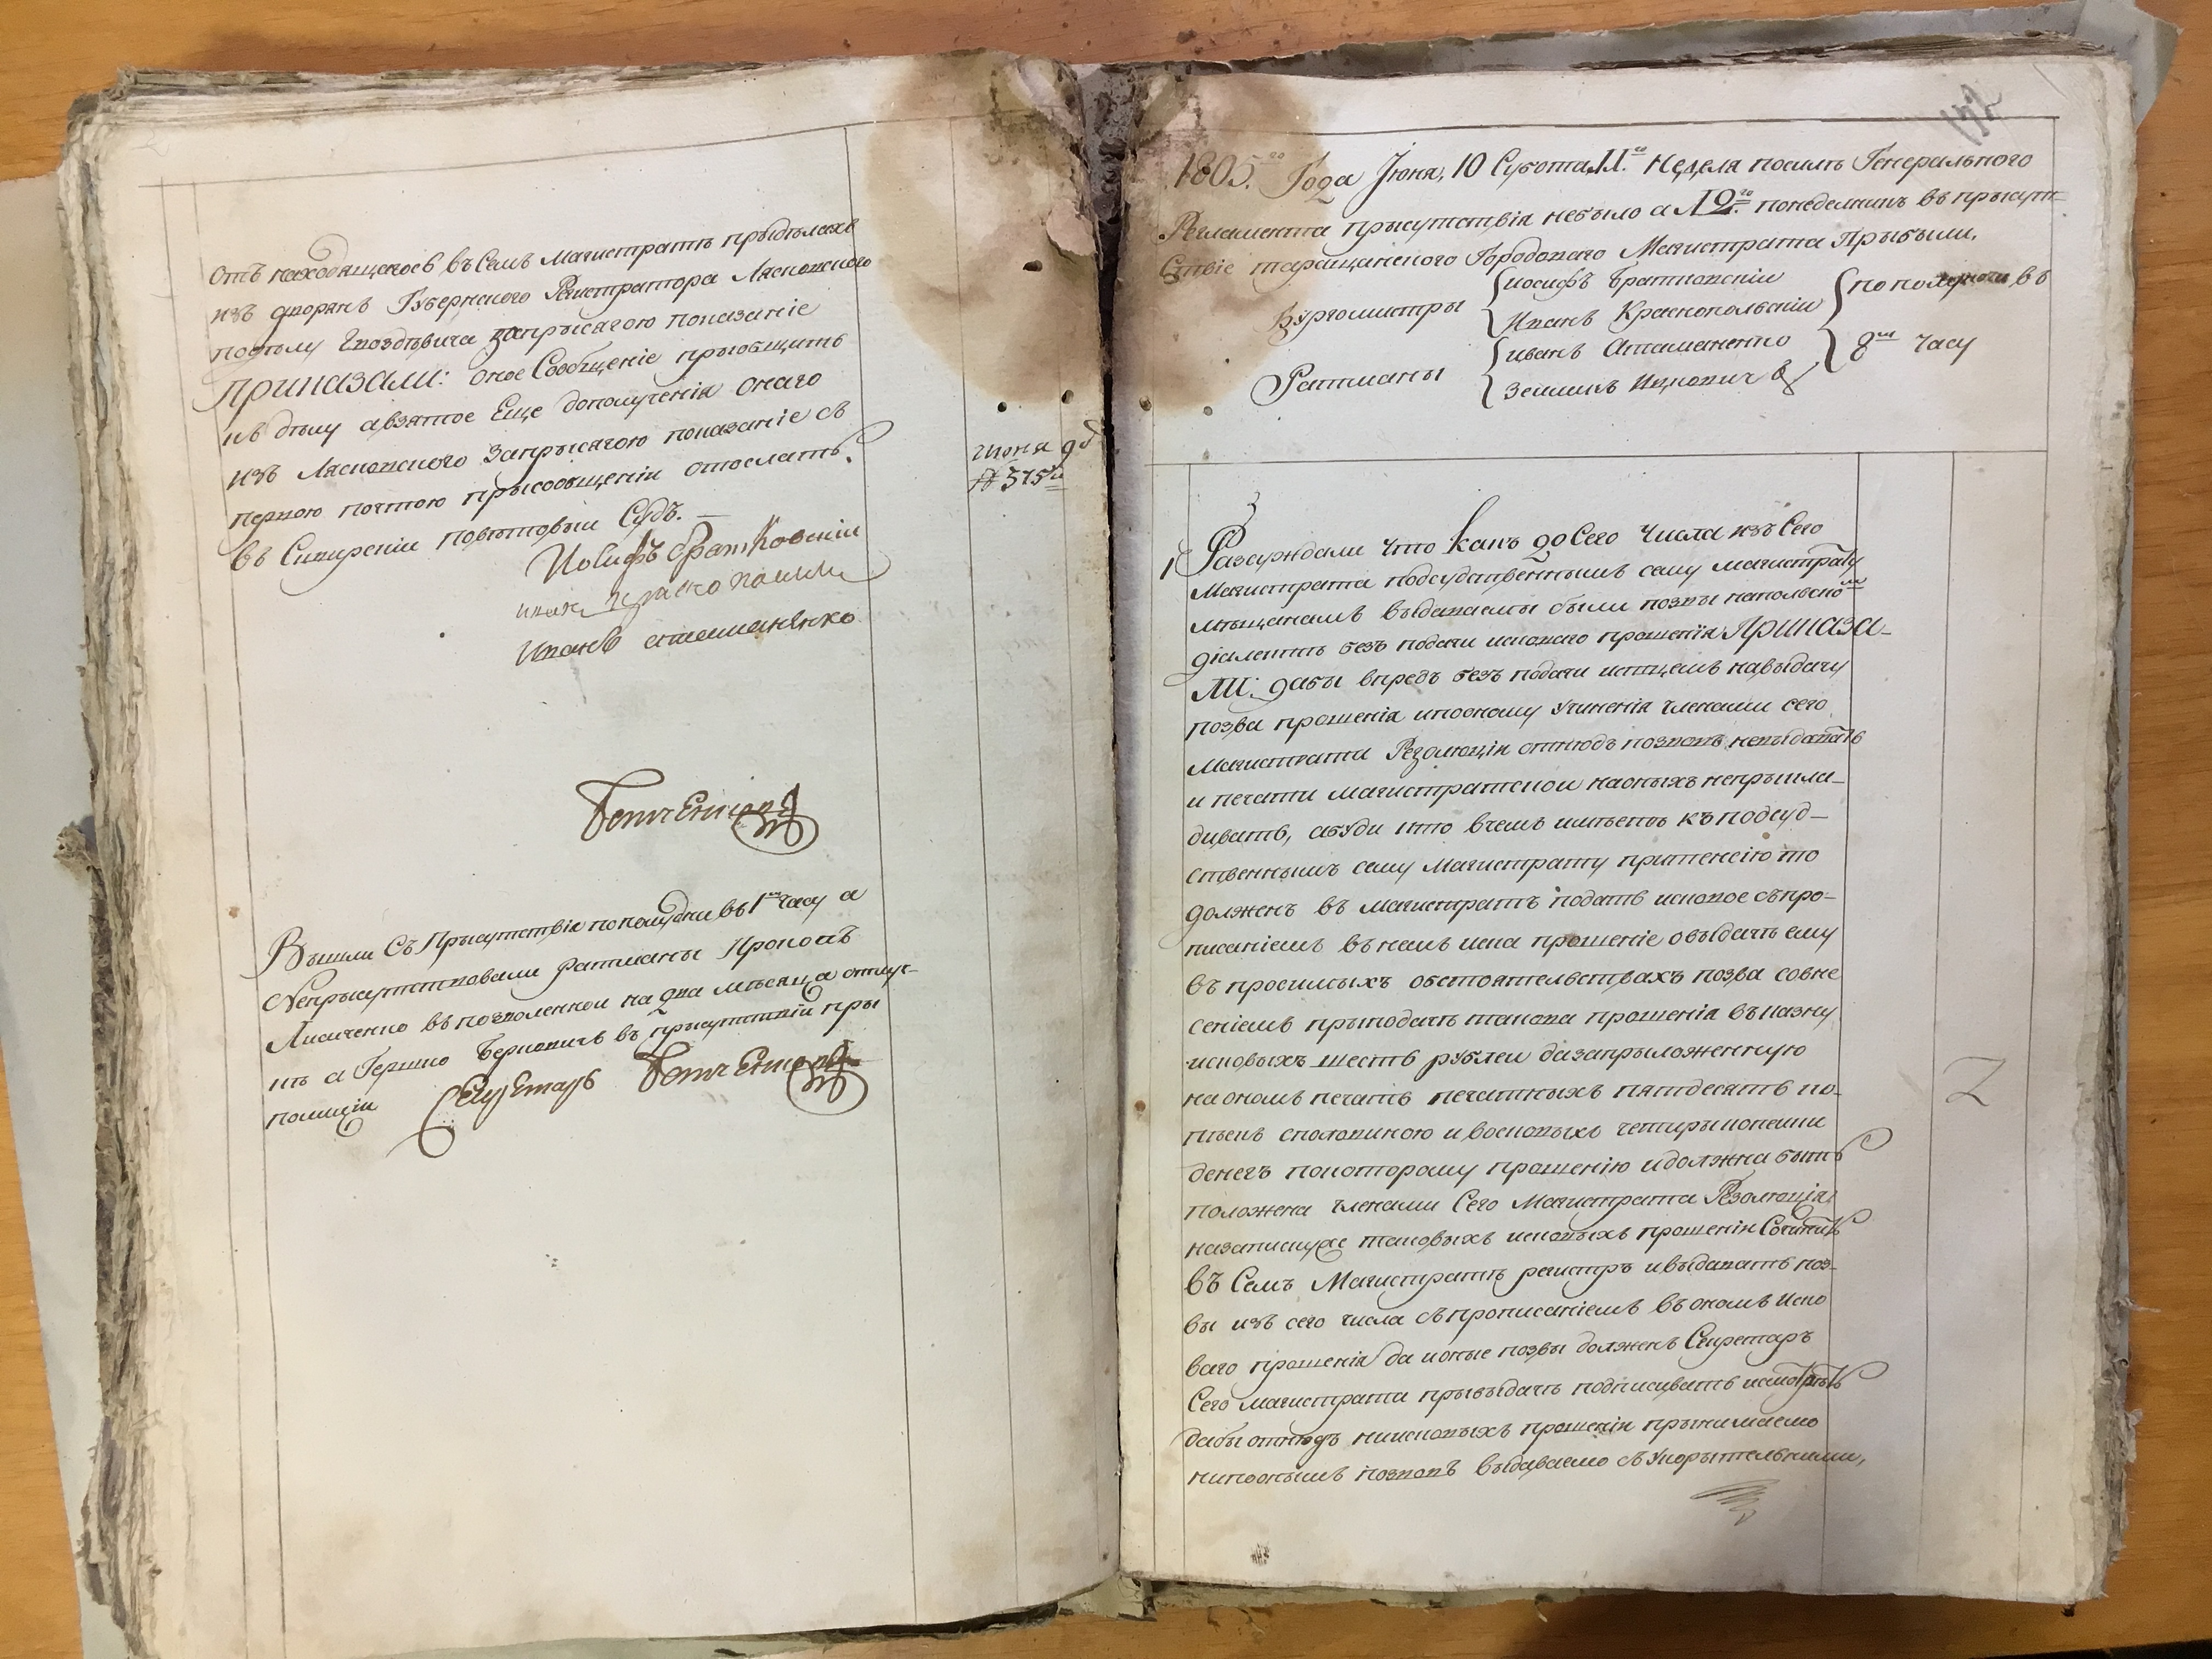 отъ находящагося въ Семъ Магистратѣ прыдѣлахъ
изъ дворянъ Губернского Регистратора Лясковского
подѣлу Гвоздѣвича запрысягою показаніе
Приказали: оное Сообщеніе пріобщить
къ дѣлу авзятое Еще дополученія онаго
изъ Лясковского Запрысягою показаніе съ
первою почтою прысообщеніи отослать
въ Сквирскіи повѣтовыи Судъ. —
июня 9д
№ 515й
Иосифъ Братковскіи
иван краснопольски
Иванъ атаманенко
Вышли Съ Прысутствія пополудни въ 1м часу а
Непрысутствовали Ратманы Прокопъ
Лисиченко въ позволенной на два мѣсяца отлуч-
къ а Гершко Берковичъ въ прысутствіи пры
полиціи
Секретарь
142
1805го Года Іюня, 10 Субота, 11го Неделя посилѣ Генерального
Регламента прысутствія небыло а 12го понеделникъ въ прысут-
Ствіе таращанского Городового Магистрата Прыбыли,
Бургомистры
иосифъ Братковскіи
Иванъ Краснопольскіи
Ратманы
иванъ Атаманенко
Зелликъ Ицковичъ
пополуночи въ
8м часу
1
Разсуждали что какъ до Сего числа изъ Сего
Магистрата подсудственнымъ сему магистрату
мѣщанамъ выдаваемы были позвы напольском
діалектѣ безъ подачи исковаго прошенія Приказа-
ли: дабы впредъ безъ подачи истцемъ навыдачу
позва прошенія ипооному Учиненія членами сего
Магистрата Резолюціи отнюдъ позвовъ невыдавать
и печати магистратской наоныхъ непрыкла-
дывать, абуди кто вчемъ имѣетъ къ подсуд-
ственнымъ сему Магистрату притенсію то
долженъ въ магистратъ подать исковое съпро-
писаніемъ въ немъ иска прошеніе овыдачѣ ему
въ просимыхъ обстоятельствахъ позва совне
сеніемъ прыподачѣ такова прошенія въказну
исковыхъ шесть рублеи дазапрыложенную
на ономъ печать печатныхъ пятдесятъ ко-
пѣекъ сполавиною ивосковыхъ четыры копеики
денегъ покоторому прошенію идолжна быть
положена членами Сего Магистрата Резолюція
въ Семъ Магистратѣ регистръ ивыдавать поз-
вы изъ сего числа съпрописаніемъ въ ономъ Иско
ваго прошенія да ионые позвы долженъ Секретарь
Сего магистрата прывыдачѣ подписывать исмотрѣть
дабы отнюдъ ниисковыхъ прошеніи прынимаемо
нипоонымъ позвовъ выдаваемо съ
2